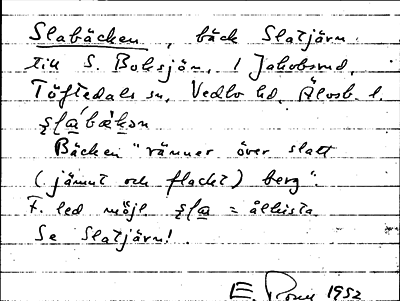 Slabäcken, bäck Slatjärn
till S. Boksjön, i Jakobsrud,
Töftedals sn, Vedbo hd, Älvsb. l.
Bäcken "ränner över slatt
(jämnt och flackt) berg".
F. led möjl. sla = ålkista.
Se Slatjärn!
E. 1952